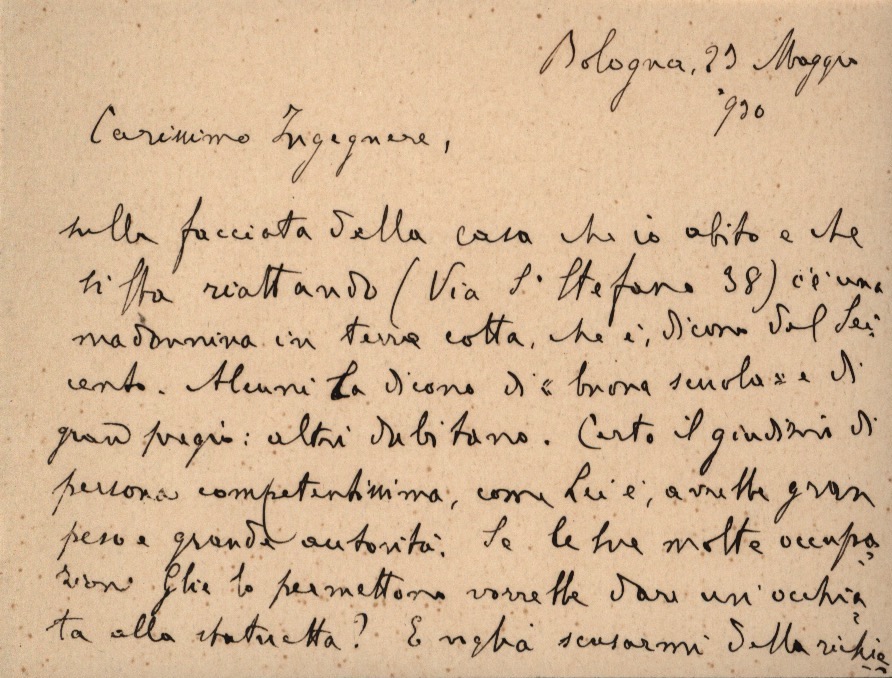 Bologna, 23 Maggio
'930
Carissimo Ingegnere,
sulla facciata della casa che io abito e che
si sta riattando (Via S. Stefano 38) c'è una
madonnina in terra cotta, che è, dicono del Sei-
cento. Alcuni la dicono di "buona scuola" e di
gran pregio: altri dubitano. Certo il giudizio di
persona competentissima, come Lei è, avrebbe gran
peso e grande autorità. Se le Sue molte occupa-
zioni Glie lo permettono vorrebbe dare un'occhia-
ta alla statuetta? E voglia scusarmi della richie-